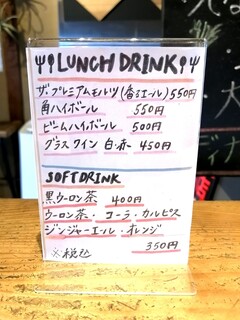 LUNCH DRINK
ザ・プレミアムモルツ(香るエール)550円
角ハイボール 550円
ビームハイボール 500円
グラスワイン 白・赤 450円
SOFT DRINK
黒ウーロン茶 400円
ウーロン茶・コーラ・カルピス
ジンジャーエール・オレンジ
350円
※税込